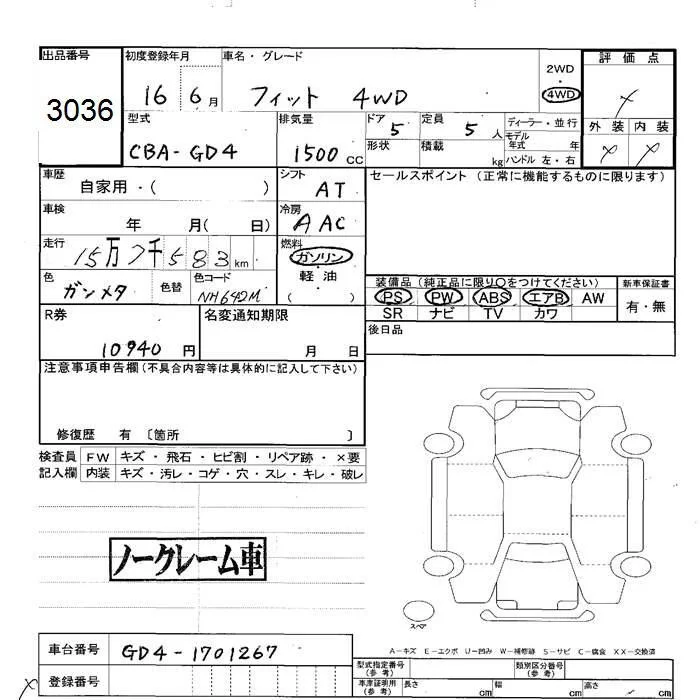 出品番号 初度登録年月 車名・グレード 評価点
3036 16 6月 フィット 4WD 2WD・4WD
型式 排気量 ドア 定員 ディーラー・並行 外装 内装
CBA-GD4 1500CC 5 5人 モデル年式 年
形状 積載 kg ハンドル 左・右
車歴 シフト セールスポイント (正常に機能するものに限ります)
自家用・( ) AT
車検 冷房
年 月( 日) AAC
走行 燃料
15万7千583km ガソリン・軽油・( )
色 色替 色コード 装備品 (純正品に限り○をつけてください) 新車保証書
ガンメタ NH642M PS PW ABS エアB AW 有・無
SR ナビ TV カワ
R券 名変通知期限 後日品
10940円 月 日
注意事項申告欄 (不具合内容等は具体的に記入して下さい)
修復歴 有 〔箇所 〕
検査員 FW キズ・飛石・ヒビ割・リペア跡・×要
記入欄 内装 キズ・汚レ・コゲ・穴・スレ・キレ・破レ
ノークレーム車
スペア
A-キズ E-エクボ U-凹み W-補修跡 S-サビ C-腐食 XX-交換済
車台番号 GD4-1701267 型式指定番号(参考) 類別区分番号(参考)
登録番号 車庫証明用(参考) 長さ cm 幅 cm 高さ cm